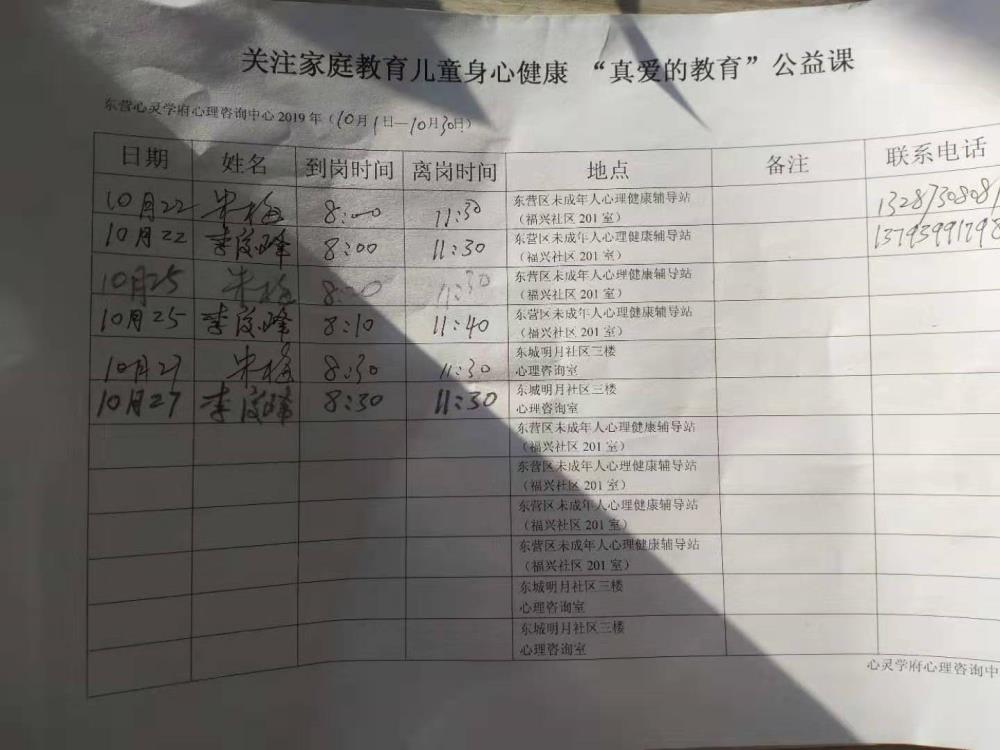 关注家庭教育儿童身心健康 “真爱的教育”公益课
东营心灵学府心理咨询中心 2019 年（10月1日—10月30日）
日期 姓名 到岗时间 离岗时间 地点 备注 联系电话
10月22 朱梅 8:00 11:30 东营区未成年人心理健康辅导站
（福兴社区 201 室）
10月22 李俊峰 8:00 11:30 东营区未成年人心理健康辅导站 13793991798
（福兴社区 201 室）
10月25 朱梅 8:00 11:30 东营区未成年人心理健康辅导站
（福兴社区 201 室）
10月25 李俊峰 8:10 11:40 东营区未成年人心理健康辅导站
（福兴社区 201 室）
10月27 朱梅 8:30 11:30 东城明月社区三楼
心理咨询室
10月27 李俊峰 8:30 11:30 东城明月社区三楼
心理咨询室
东营区未成年人心理健康辅导站
（福兴社区 201 室）
东营区未成年人心理健康辅导站
（福兴社区 201 室）
东营区未成年人心理健康辅导站
（福兴社区 201 室）
东营区未成年人心理健康辅导站
（福兴社区 201 室）
东城明月社区三楼
心理咨询室
东城明月社区三楼
心理咨询室
心灵学府心理咨询中